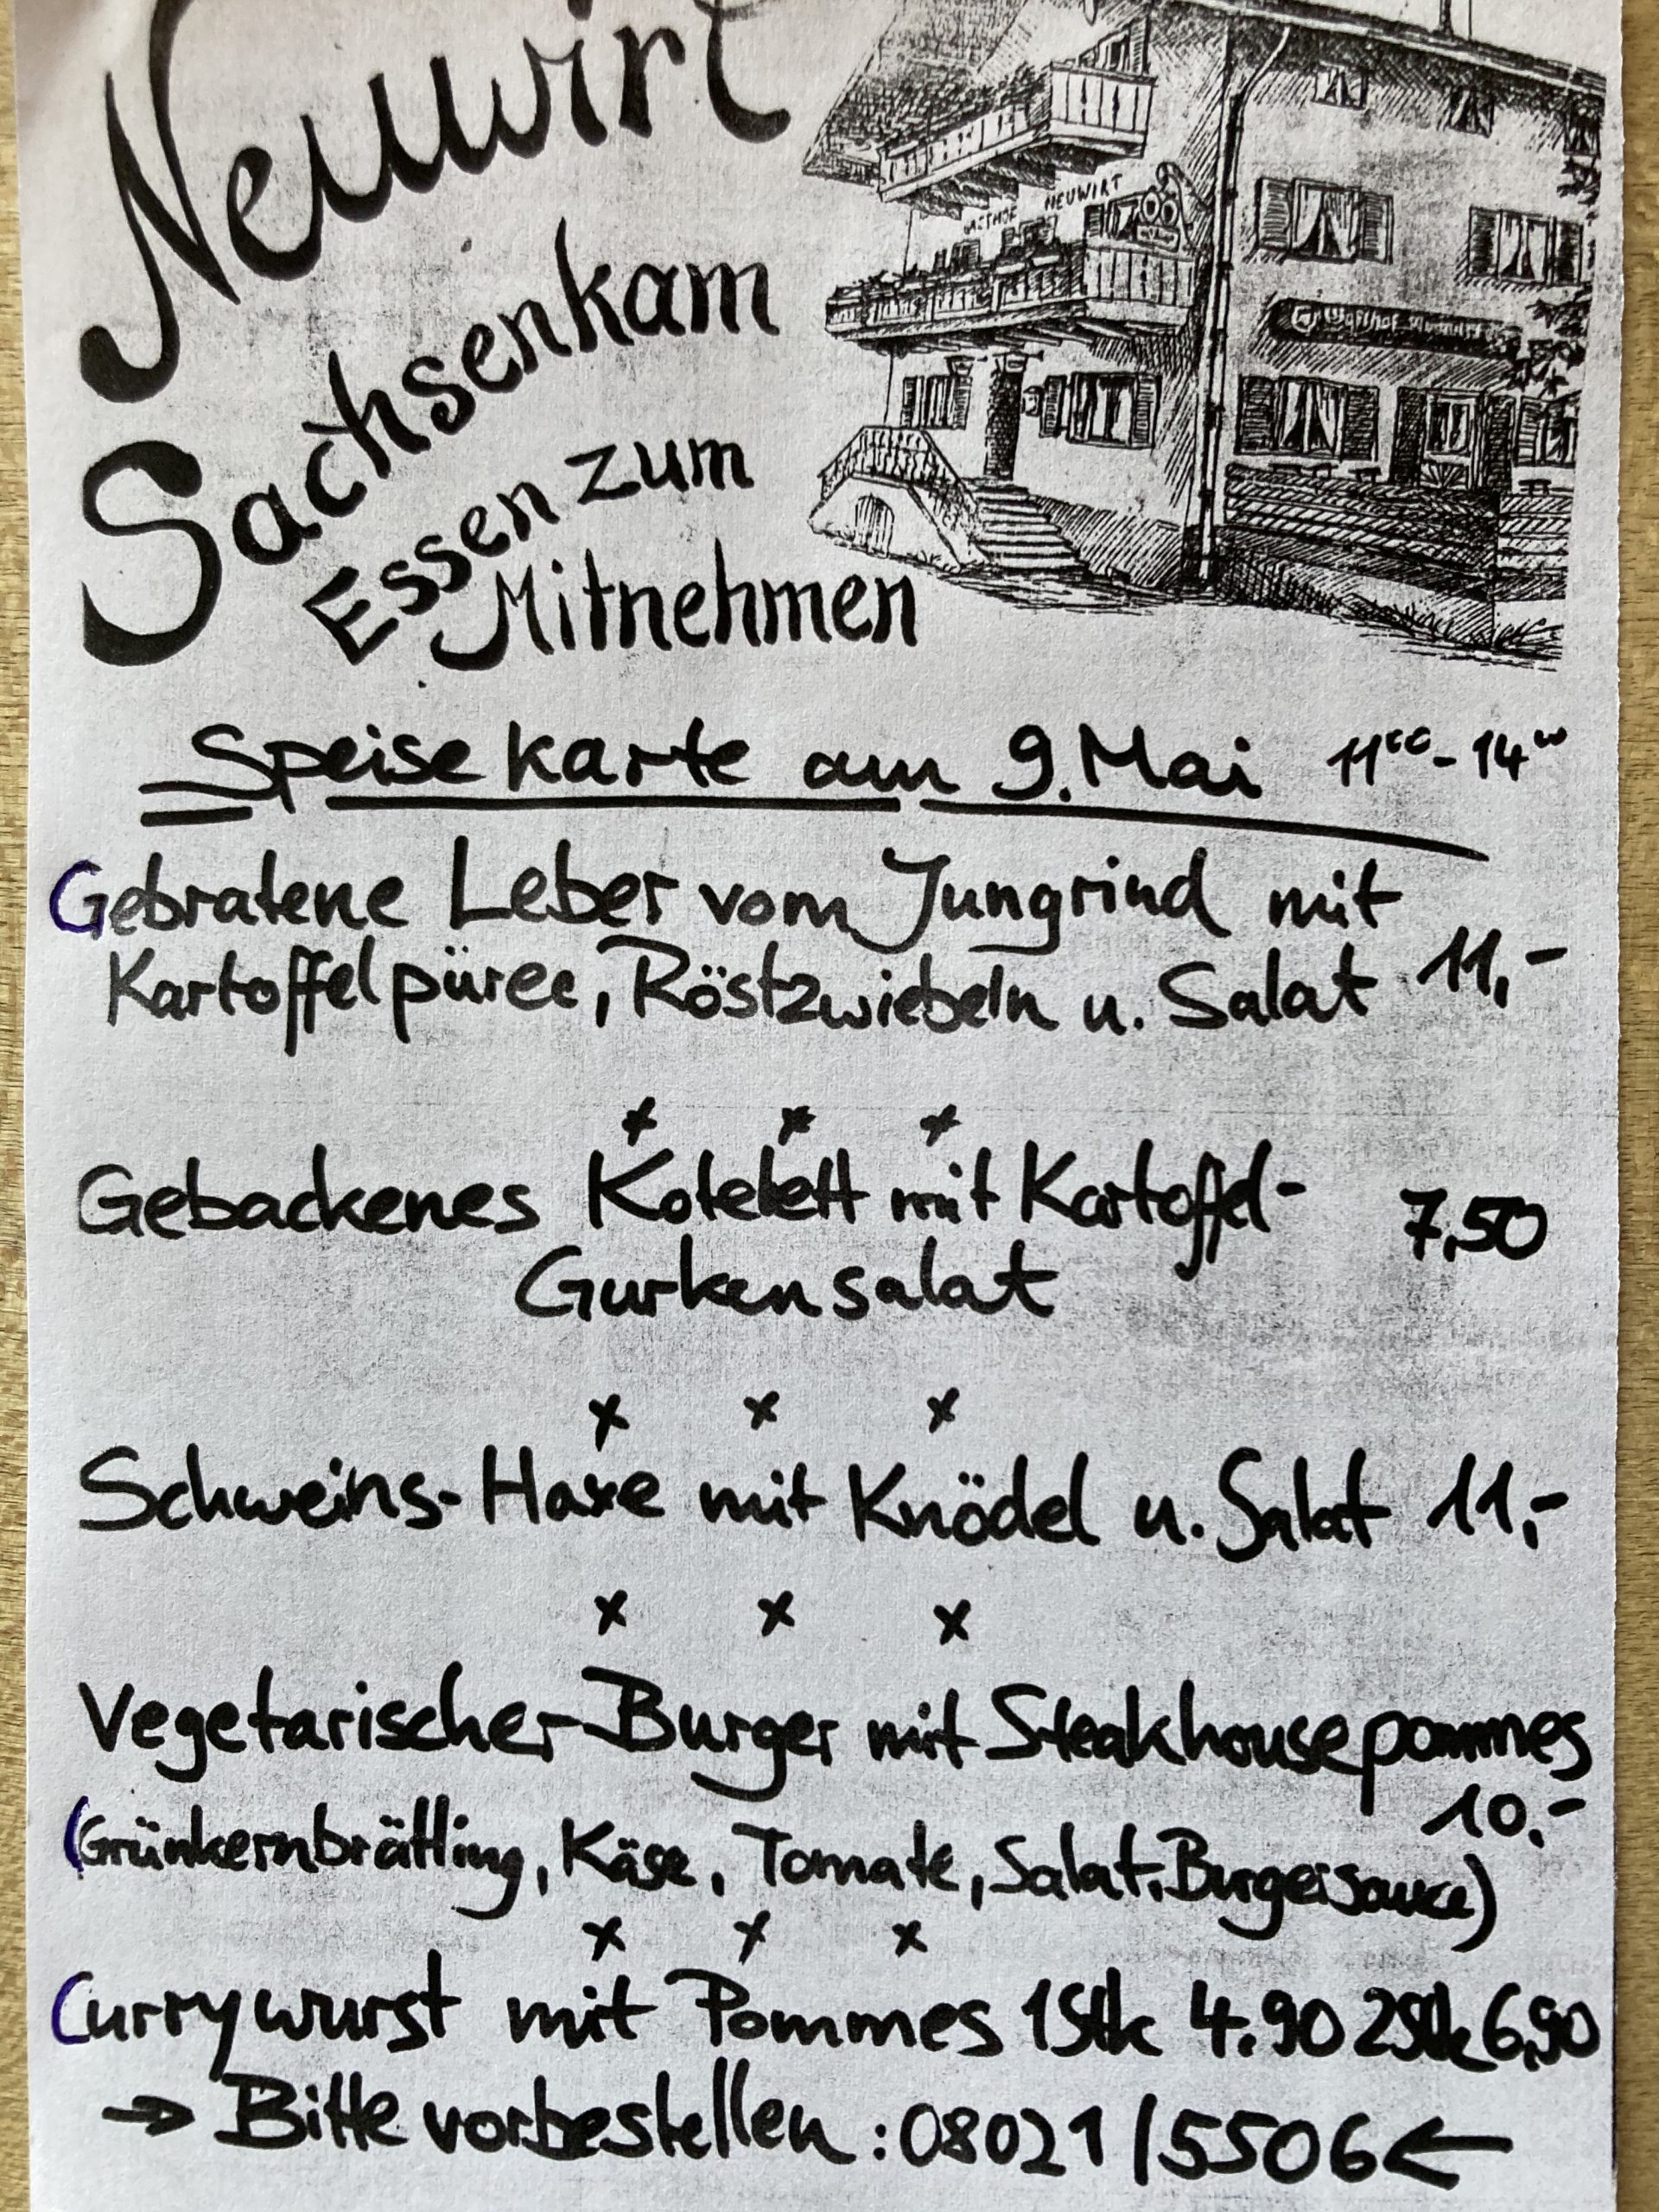 Neuwirt
Sachsenkam
Essen zum
Mitnehmen
GASTHOF NEUWIRT
Gasthof Neuwirt
Speisekarte am 9. Mai 11⁰⁰ - 14⁰⁰
Gebratene Leber vom Jungrind mit
Kartoffelpüree, Röstzwiebeln u. Salat 11,-
x x x
Gebackenes Kotelett mit Kartoffel- 7,50
Gurkensalat
x x x
Schweins-Haxe mit Knödel u. Salat 11,-
x x x
Vegetarischer Burger mit Steakhousepommes
10,-
(Grünkernbrätling, Käse, Tomate, Salat, Burgersauce)
x x x
Currywurst mit Pommes 1Stk 4.90 2Stk 6,90
→ Bitte vorbestellen: 08021/5506 ←